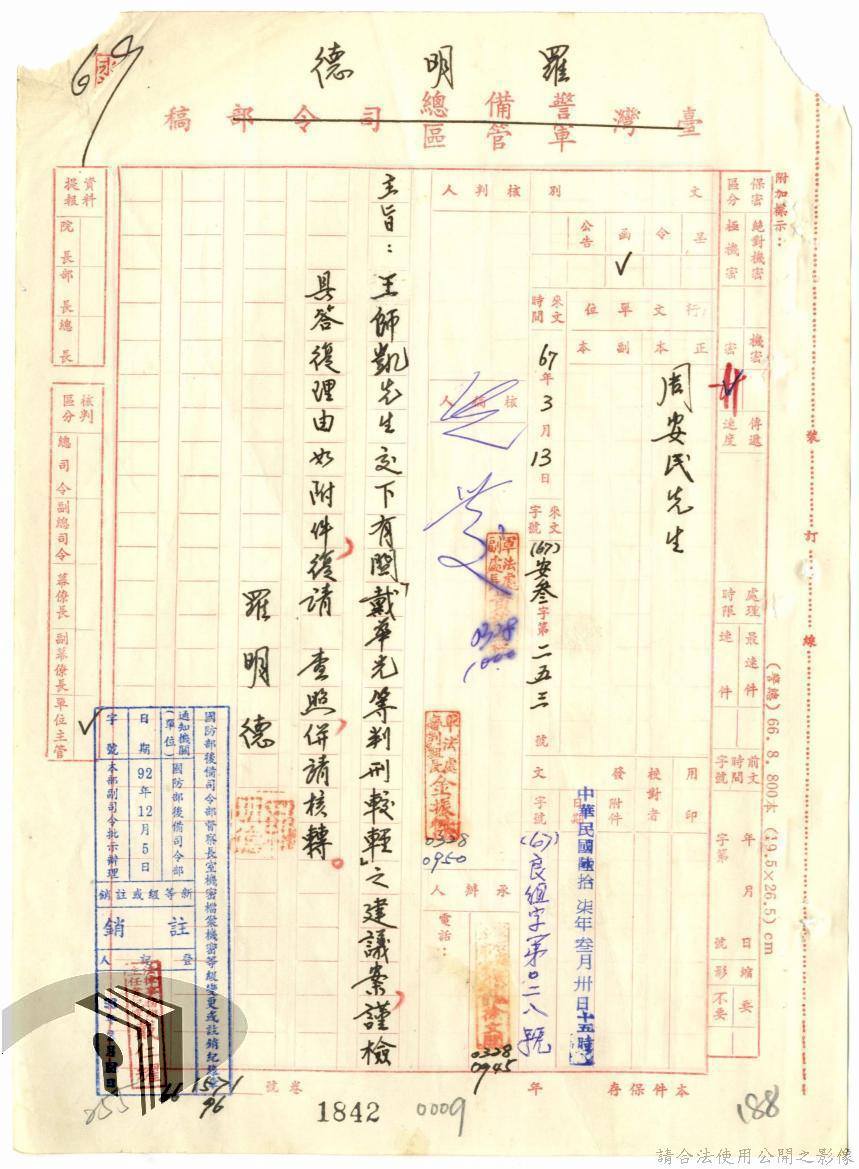 羅明德
臺灣警備總司令部稿
軍管區
附加標示：
保密區分
絕對機密
極機密
機密
密
傳遞速度
處理時限
最速件
速件
前文時間字號
年月日
字第號
縮形
要
不要
文別
呈
令
函
公告
✓
核判人
行文單位
正本
副本
周安民先生
來文時間
67年3月13日
來文字號
(67)安叁字第二五三號
核稿人
軍法處副處長
0328
1000
用印
校對者
附件
發文
日期
中華民國陸拾柒年叁月卅日十五時
字號
(67)良組字第0二八號
軍法處審判組長
0328
0950
承辦人
電話：
0328
0945
主旨：王師凱先生交下有關「戴華光等判刑較輕」之建議案謹檢
具答復理由如附件復請　查照併請核轉。
羅明德
資料提報
院長
部長
總長
核判區分
總司令
副總司令
幕僚長
副幕僚長
單位主管
✓
國防部後備司令部督察長室機密檔案機密等級變更或註銷紀錄章
通知機關(單位)
國防部後備司令部
日期
92年12月5日
字號
本部副司令批示辦理
新等級或註銷
註銷
登記人
本件保存年
卷號
1842
0009
188
1571
96
裝訂線
(普聯) 66. 8. 800本 (19.5×26.5) cm
請合法使用公開之影像